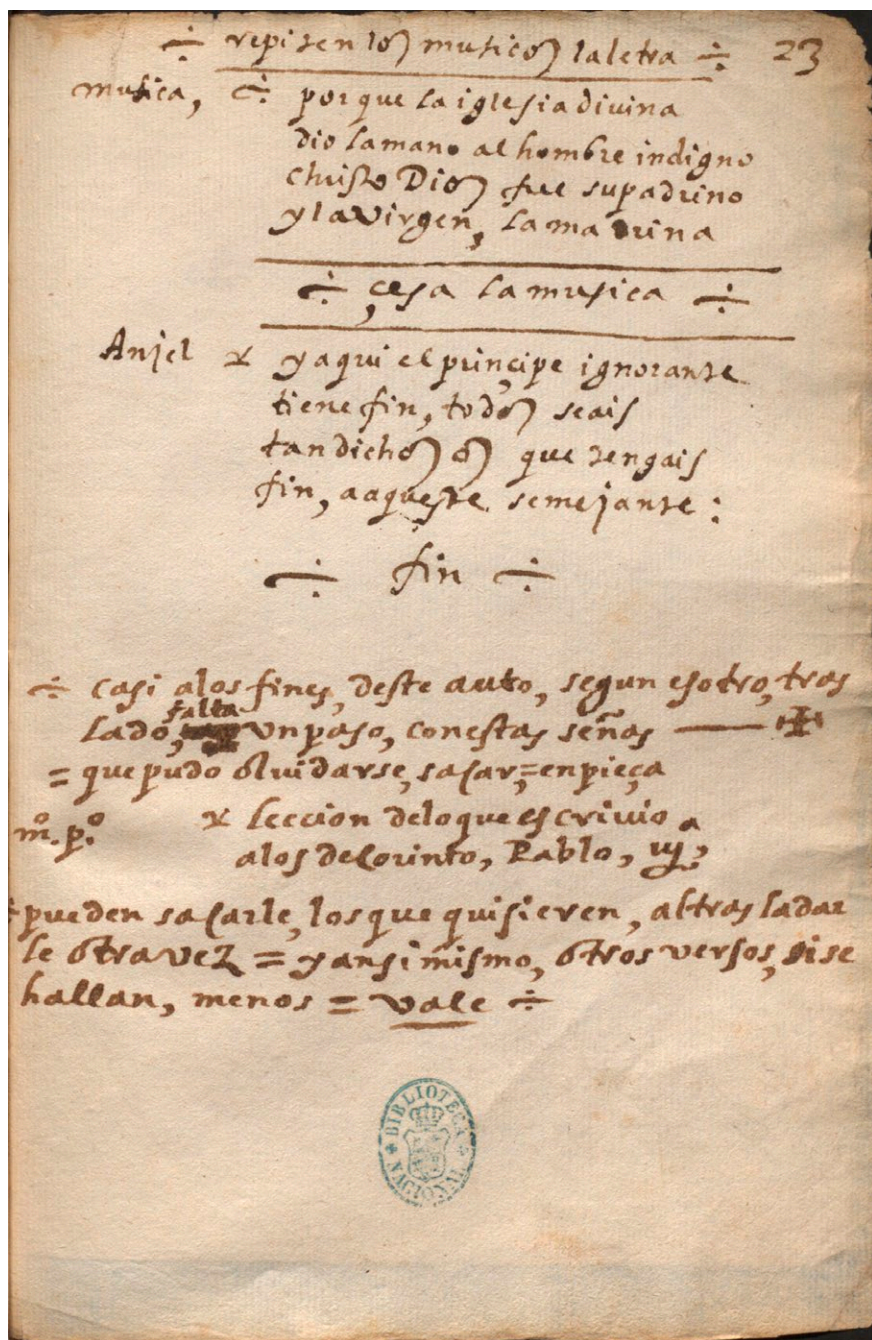 ÷ repiten los musicos la letra ÷ 23
musica, ÷ porque la iglesia divina
dio la mano al hombre indigno
christo Dios fue su padrino
y la virgen, la madrina
÷ çesa la musica ÷
Anjel x y aqui el prinçipe ignorante
tiene fin, todos seais
tan dichosos que tengais
fin, a aqueste semejante:
÷ fin ÷
÷ casi alos fines, deste auto, segun esotro, tras
falta
lado, un paso, con estas señas —— ✠
= que pudo olvidarse, sacar, = enpieça
mº. pº. x leccion de lo que escrivio
a los de Corinto, Pablo,
÷ pueden sacarle, los que quisieren, al trasladar
le otra vez = y ansi mismo, otros versos, si se
hallan, menos = vale ÷
BIBLIOTECA NACIONAL